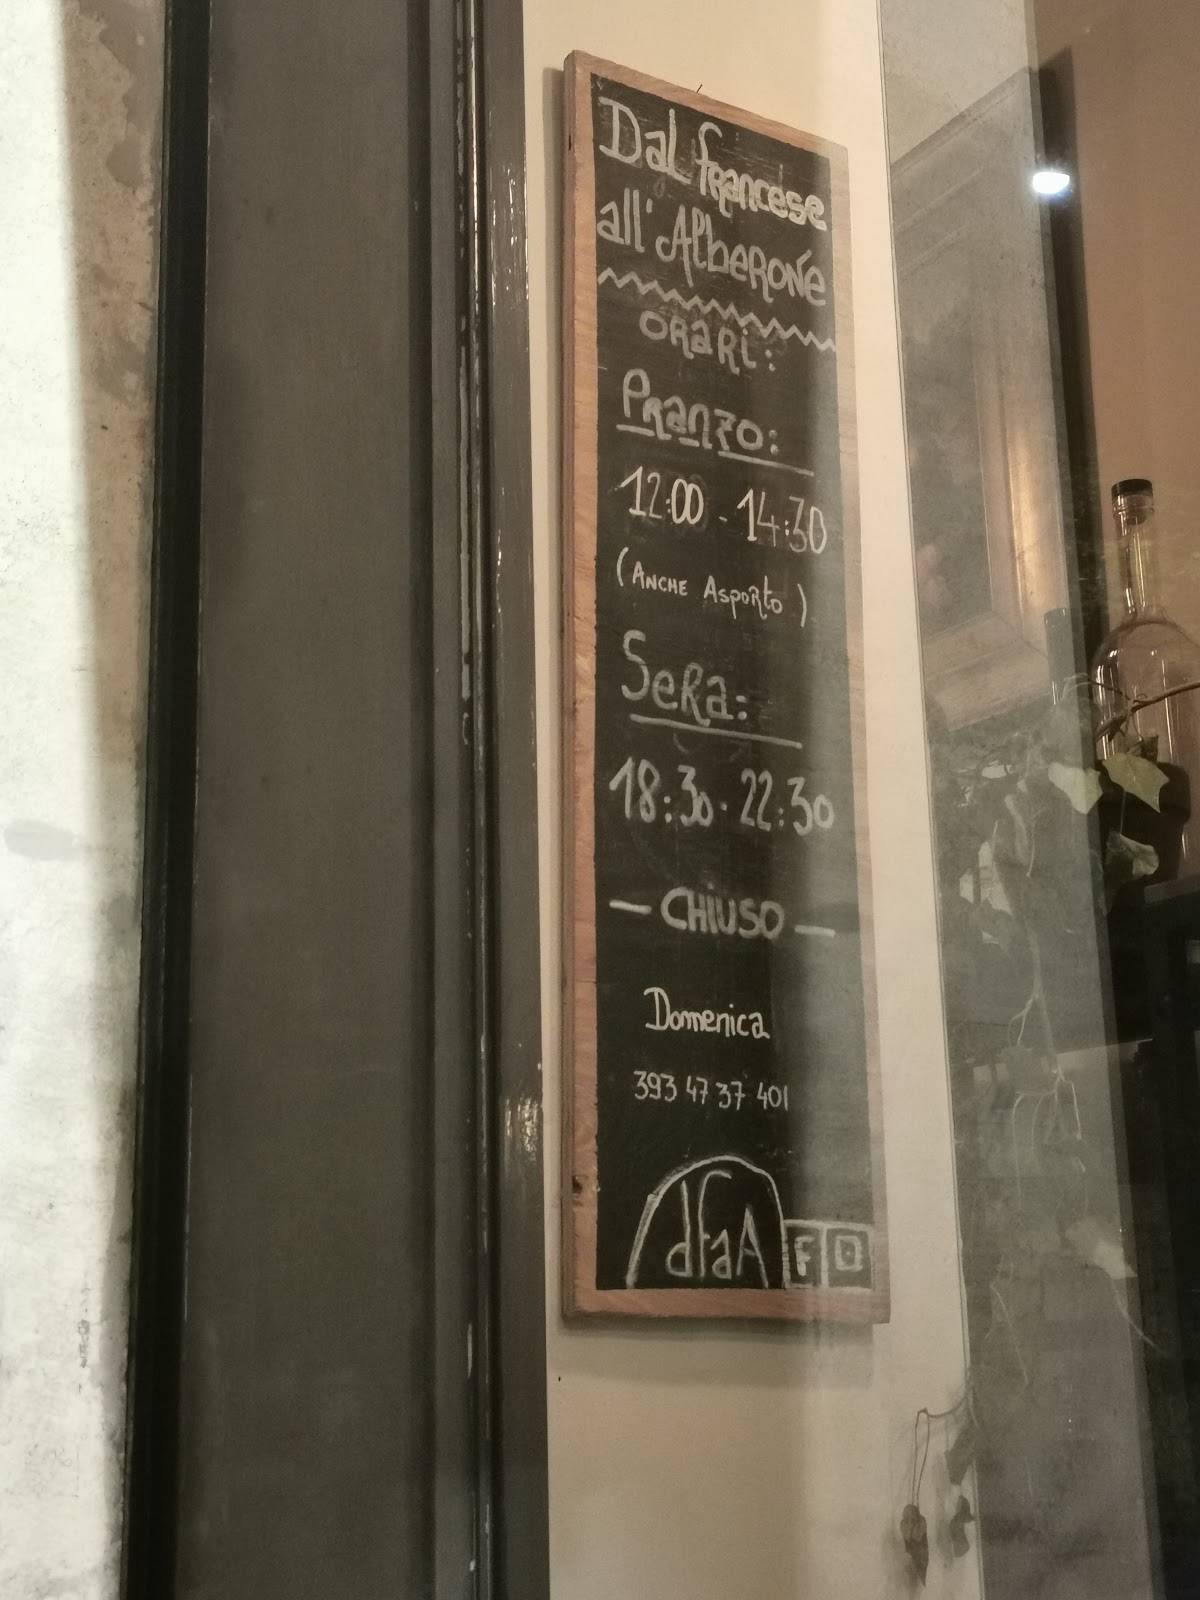 Dal francese
all'Alberone
orari:
Pranzo:
12:00 - 14:30
(Anche Asporto)
Sera:
18:30 - 22:30
— CHIUSO —
Domenica
393 47 37 401
dfaA F O